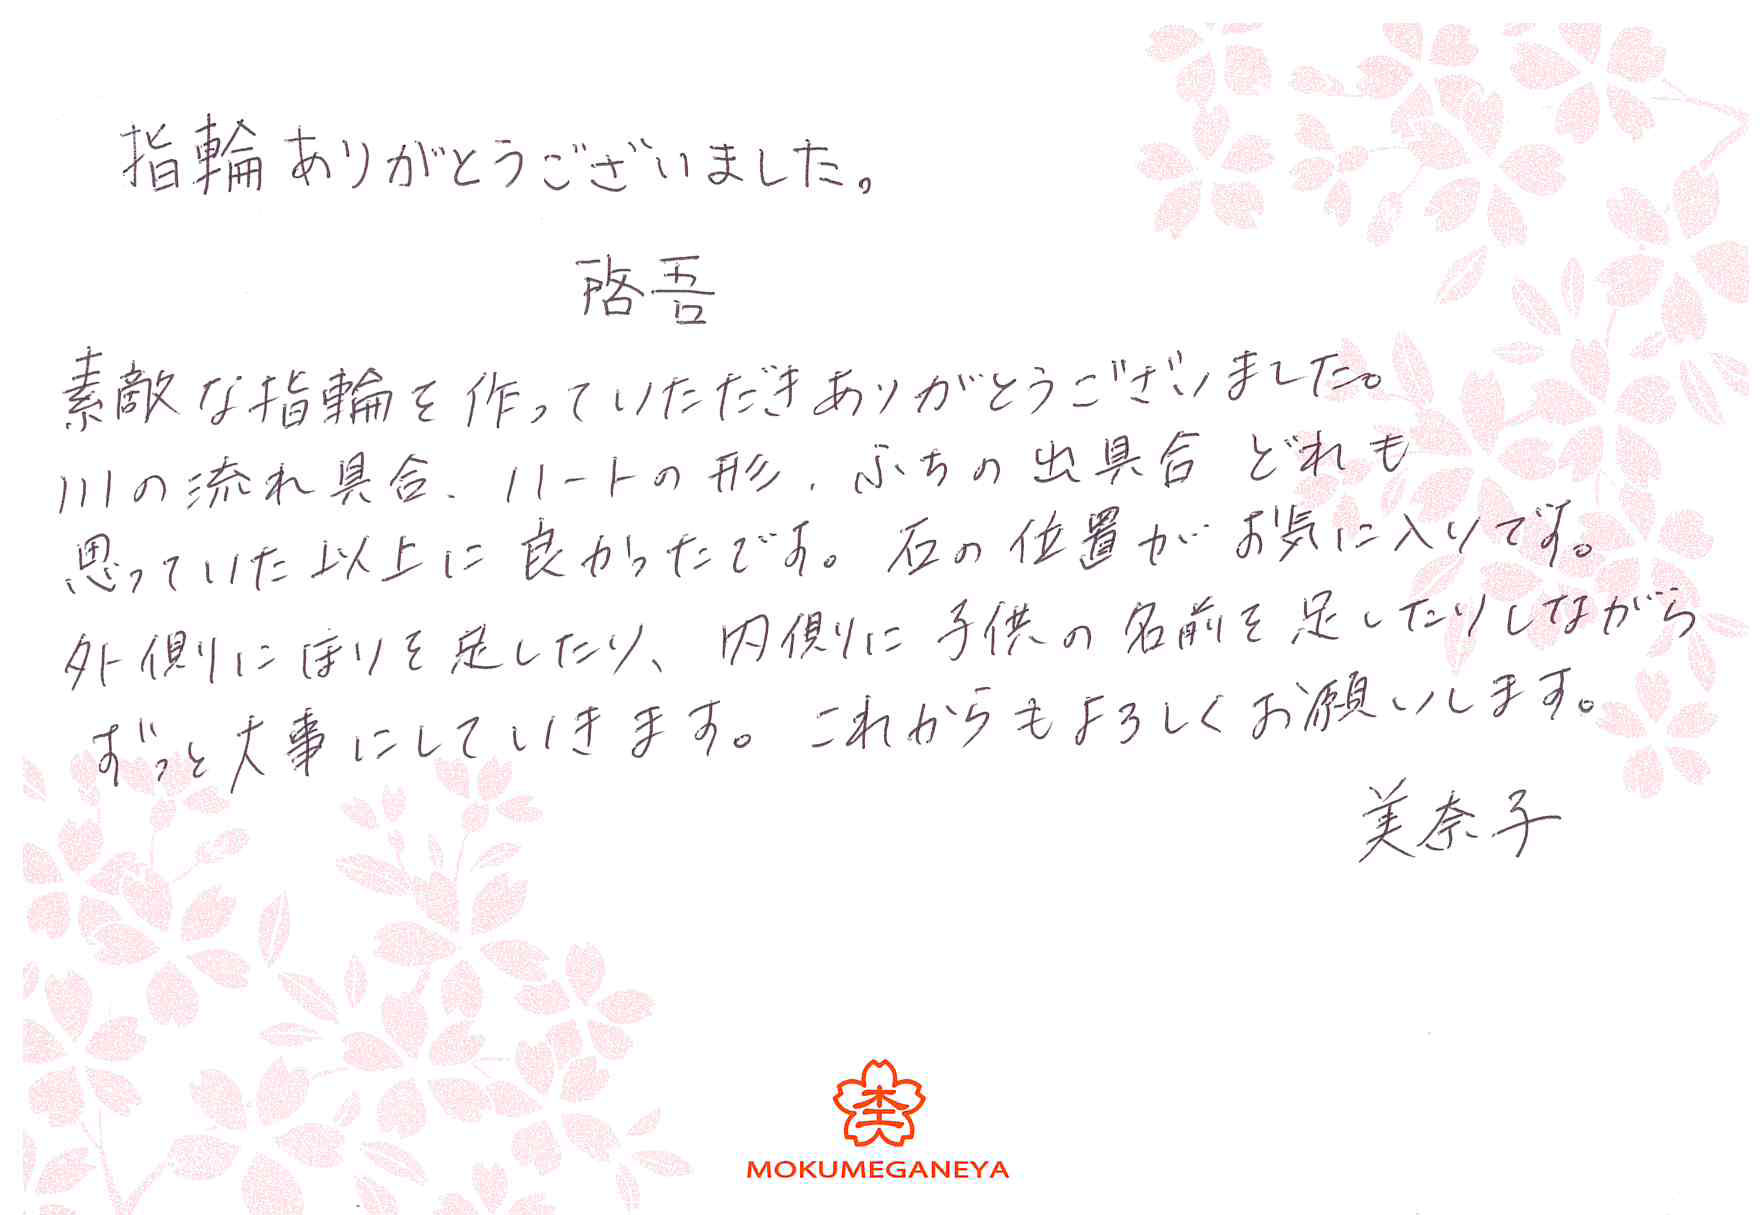 指輪ありがとうございました。
啓吾
素敵な指輪を作っていただきありがとうございました。
川の流れ具合、ハートの形、ふちの出具合 どれも
思っていた以上に良かったです。石の位置がお気に入りです。
外側にほりを足したり、内側に子供の名前を足したりしながら
ずっと大事にしていきます。これからもよろしくお願いします。
美奈子
杢
MOKUMEGANEYA